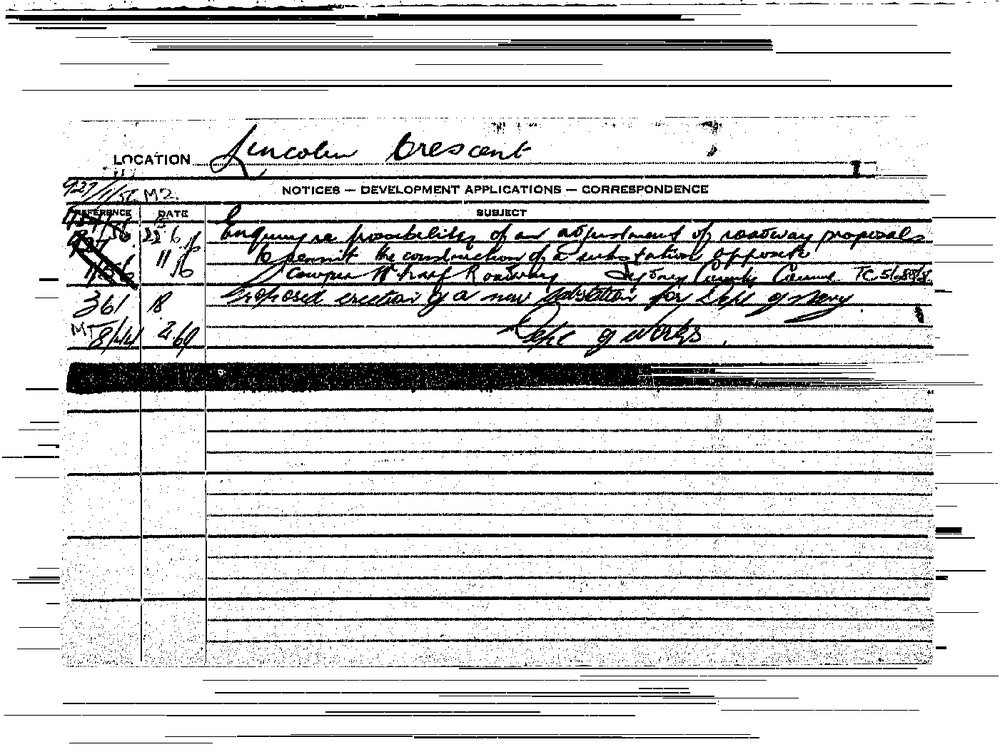 LOCATION Lincoln Crescent
NOTICES — DEVELOPMENT APPLICATIONS — CORRESPONDENCE
927/11/56 M2
REFERENCE DATE SUBJECT
Enquiry re possibility of an adjustment of roadway proposals
to permit the construction of a substation opposite
Cowper Wharf Roadway Sydney County Council
361 18 Proposed erection of a new substation for Dept of Navy
8/44 2.69 Dept of Works.